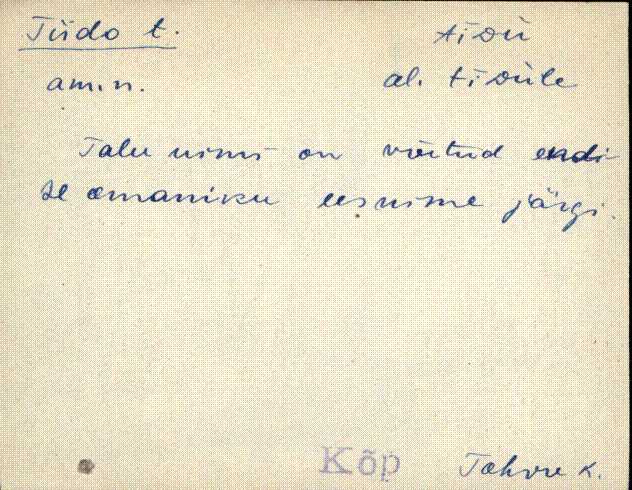 Tiido t. tiDÜ
am.n. al. tiDÜle
Talu nimi on võetud endi-
se omaniku eesnime järgi.
Kõp Tohvre k.